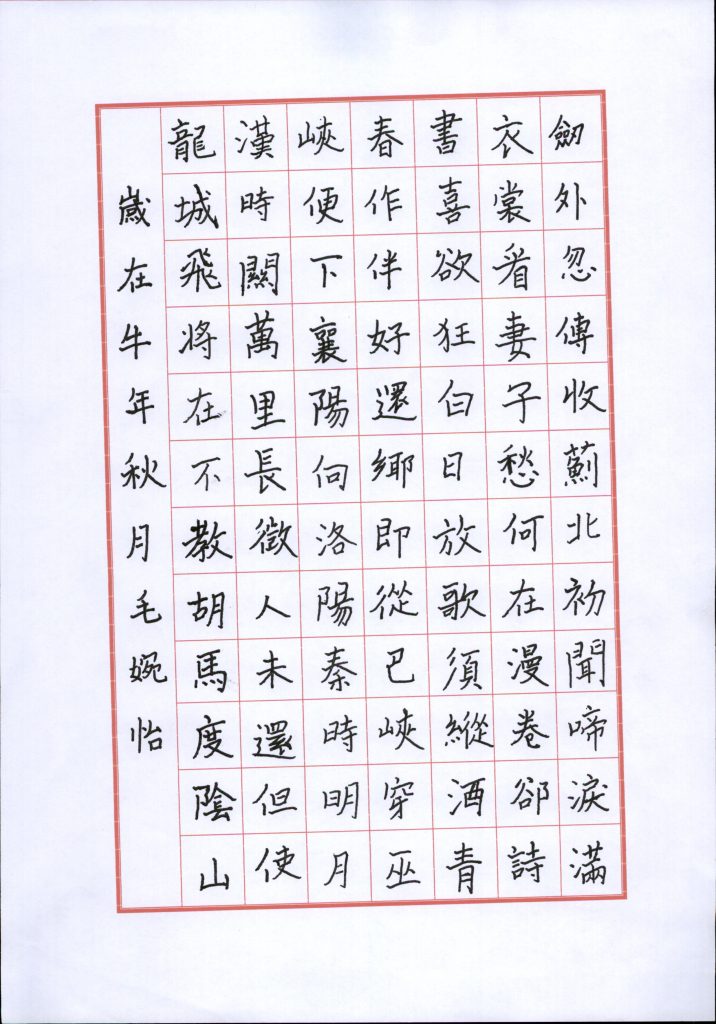 劒外忽傳收薊北初聞啼淚滿
衣裳看妻子愁何在漫卷卻詩
書喜欲狂白日放歌須縱酒青
春作伴好還鄉即從巴峽穿巫
峽便下襄陽向洛陽秦時明月
漢時關萬里長徵人未還但使
龍城飛將在不教胡馬度陰山
歲在牛年秋月毛婉怡